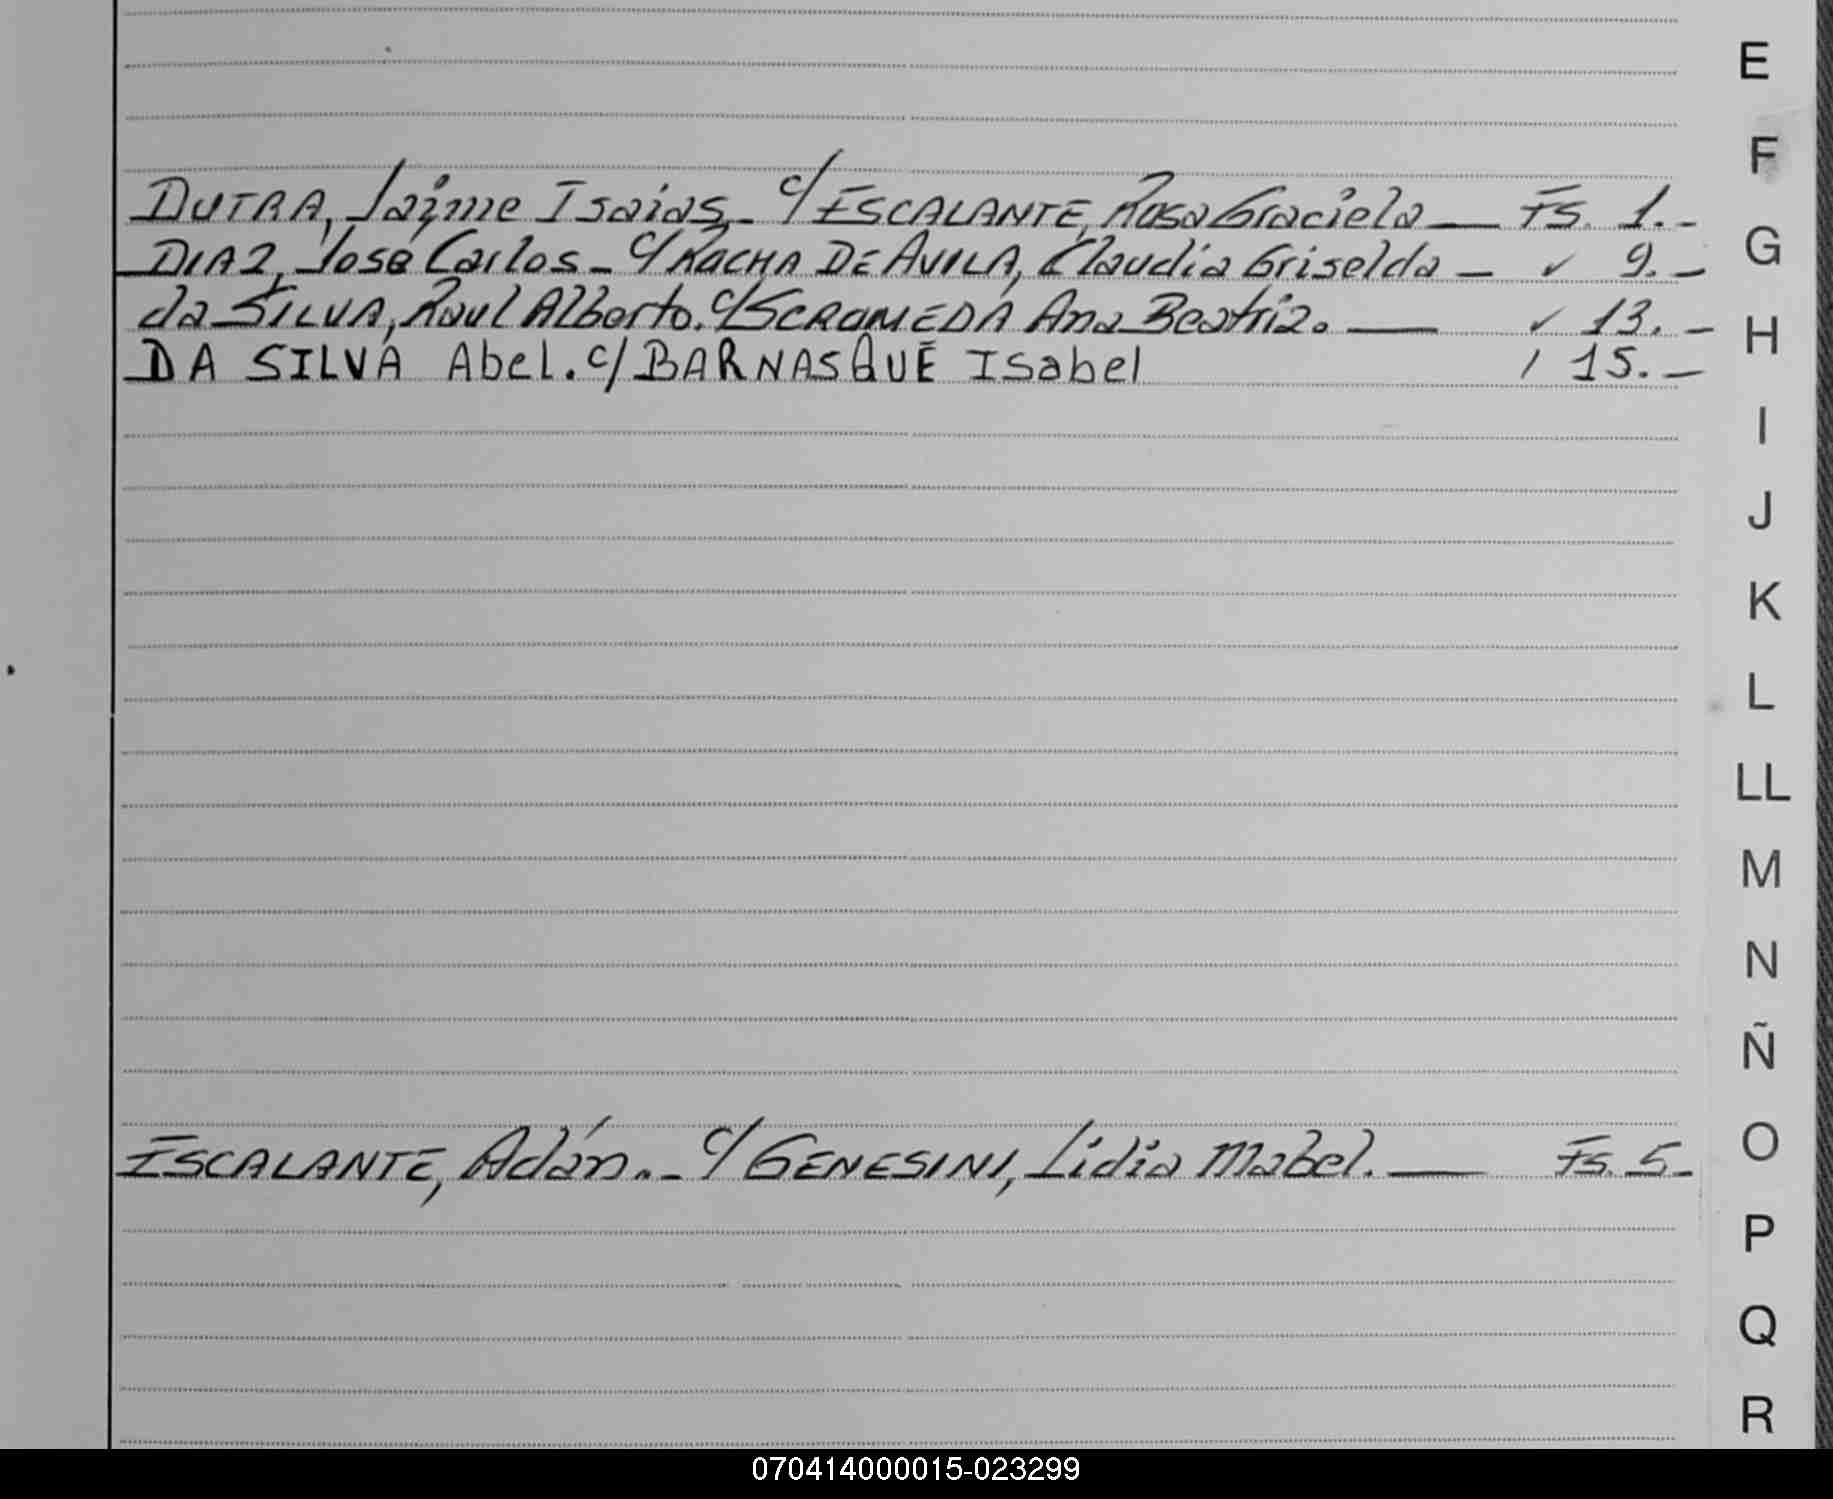 E
F
DUTRA, Jaime Isaias - c/ ESCALANTE, Rosa Graciela — Fs. 1.-
G
DIAZ, José Carlos - c/ ROCHA DE AVILA, Claudia Griselda - ✓ 9.-
da SILVA, Raul Alberto. c/ Ana Beatriz. — ✓ 13.-
H
DA SILVA Abel. c/ BARNASQUE Isabel / 15.-
I
J
K
L
LL
M
N
Ñ
O
ESCALANTE, Adán.- c/ GENESINI, Lidia Mabel. — Fs. 5-
P
Q
R
070414000015-023299